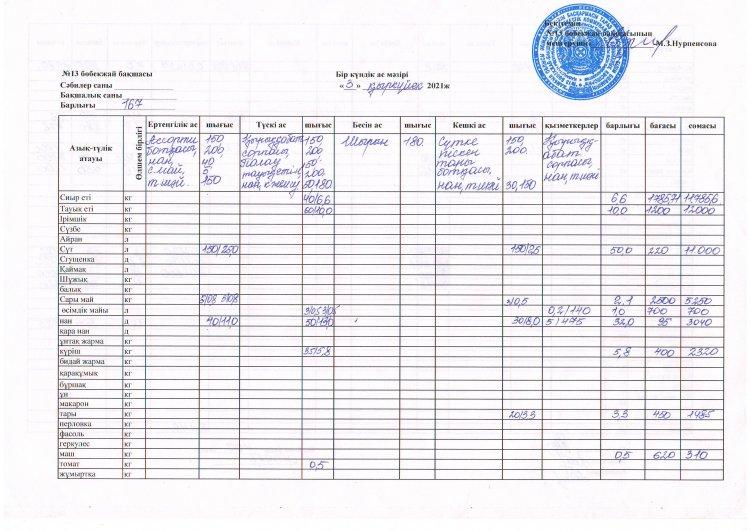 Бекітемін
№13 бөбекжай бақшасының
меңгерушісі М.З.Нурпенсова
№13 бөбекжай бақшасы
Сәбилер саны
Бақшалық саны
Барлығы 167
Бір күндік ас мәзірі
« 3 » қыркүйек 2021ж
Азық-түлік атауы Өлшем бірлігі Ертеңгілік ас шығыс Түскі ас шығыс Бесін ас шығыс Кешкі ас шығыс қызметкерлер барлығы бағасы сомасы
Ассорти ботқасы, нан, с.май, тәтті шай. 150 200 40 5 150
150, 200 150 200 50 180
180
Сүтке піскен тары ботқасы, нан, тәтті шай 150, 200. 30, 150
Сиыр еті кг 40/6,6 6,6 1785,71 11785,6
Тауық еті кг 60/10,0 10,0 1200 12000
Ірімшік кг
Сүзбе кг
Айран л
Сүт л 150/25,0 150/25 50,0 220 11000
Сгущенка д
Қаймақ д
Шұжық кг
балық кг
Сары май кг 5/0,8 5/0,8 3/0,5 2,1 2500 5250
өсімдік майы л 3/0,5 3/0,5 0,2/140 1,0 700 700
нан д 40/11,0 50/13,0 30/8,0 5/475 32,0 95 3040
қара нан д
ұнтақ жарма кг
күріш кг 35/5,8 5,8 400 2320
бидай жарма кг
қарақұмық кг
бұршақ кг
ұн кг
макарон кг
тары кг 20/3,3 3,3 450 1485
перловка кг
фасоль кг
геркулес кг
маш кг 0,5 620 310
томат кг 0,5
жұмыртка кг